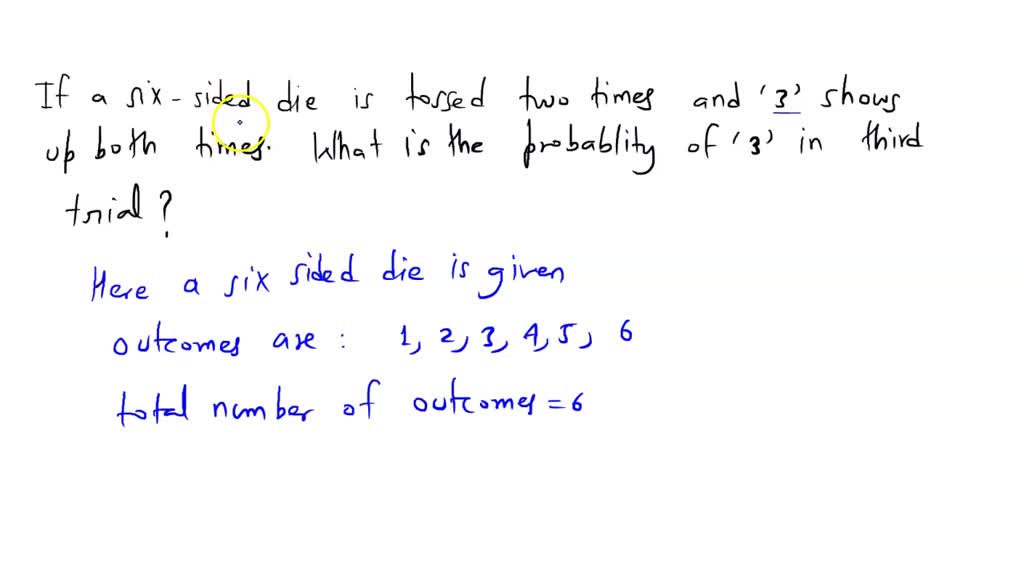 If a six-sided die is tossed two times and '3' shows
up both times. What is the probablity of '3' in third
trial?
Here a six sided die is given
outcomes are : 1, 2, 3, 4, 5, 6
total number of outcomes = 6